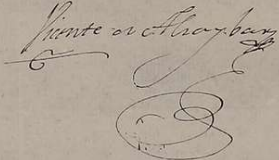 Vicente de Alraybar